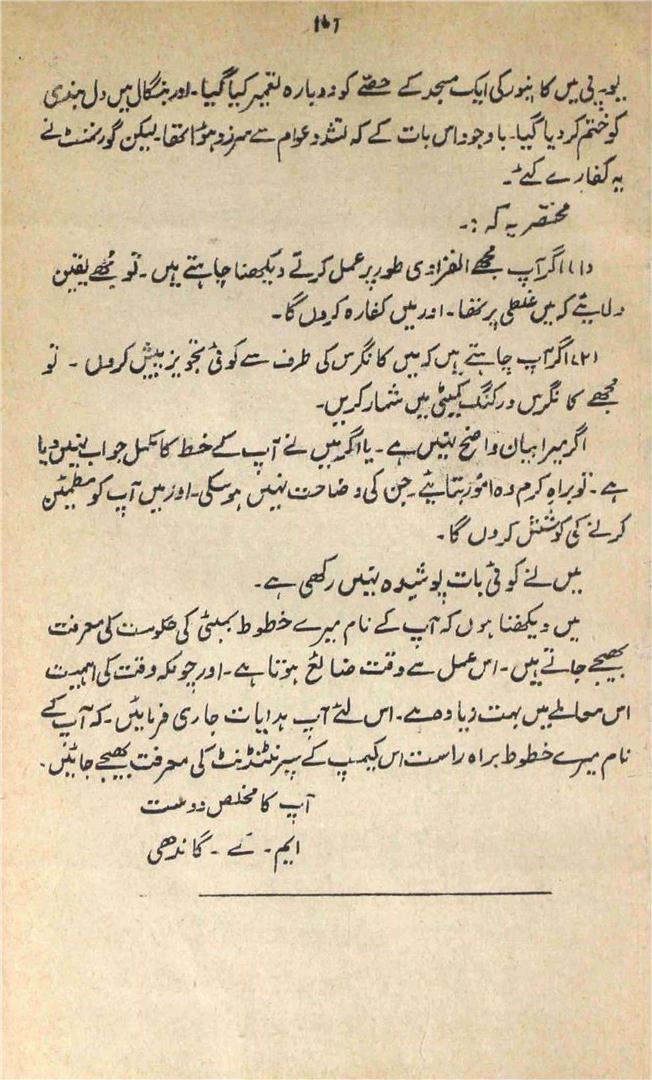 ۱۷۶
یو۔ پی میں کانپور کی ایک مسجد کے حصے کو دوبارہ تعمیر کیا گیا۔ اور بنگال میں دل بندی
کو ختم کر دیا گیا۔ باوجود اس بات کے کہ تشدد عوام سے سرزد ہوا تھا۔ لیکن گورنمنٹ نے
یہ کفارے کئے۔
مختصر یہ کہ :۔
(۱) اگر آپ مجھے انفرادی طور پر عمل کرتے دیکھنا چاہتے ہیں۔ تو مجھے یقین
دلایئے کہ میں غلطی پر تھا۔ اور میں کفارہ کروں گا۔
(۲) اگر آپ چاہتے ہیں کہ میں کانگرس کی طرف سے کوئی تجویز پیش کروں ۔ تو
مجھے کانگرس ورکنگ کمیٹی میں شمار کریں۔
اگر میرا بیان واضح نہیں ہے۔ یا اگر میں نے آپ کے خط کا مکمل جواب نہیں دیا
ہے۔ تو براہِ کرم وہ امور بتایئے۔ جن کی وضاحت نہیں ہو سکی۔ اور میں آپ کو مطمئن
کرنے کی کوشش کروں گا۔
میں نے کوئی بات پوشیدہ نہیں رکھی ہے۔
میں دیکھتا ہوں کہ آپ کے نام میرے خطوط بمبئی کی حکومت کی معرفت
بھیجے جاتے ہیں۔ اس عمل سے وقت ضائع ہوتا ہے۔ اور چونکہ وقت کی اہمیت
اس معاملے میں بہت زیادہ ہے۔ اس لئے آپ ہدایات جاری فرمائیں۔ کہ آپ کے
نام میرے خطوط براہ راست اس کیمپ کے سپرنٹنڈنٹ کی معرفت بھیجے جائیں۔
آپ کا مخلص دوست
ایم۔ کے۔ گاندھی